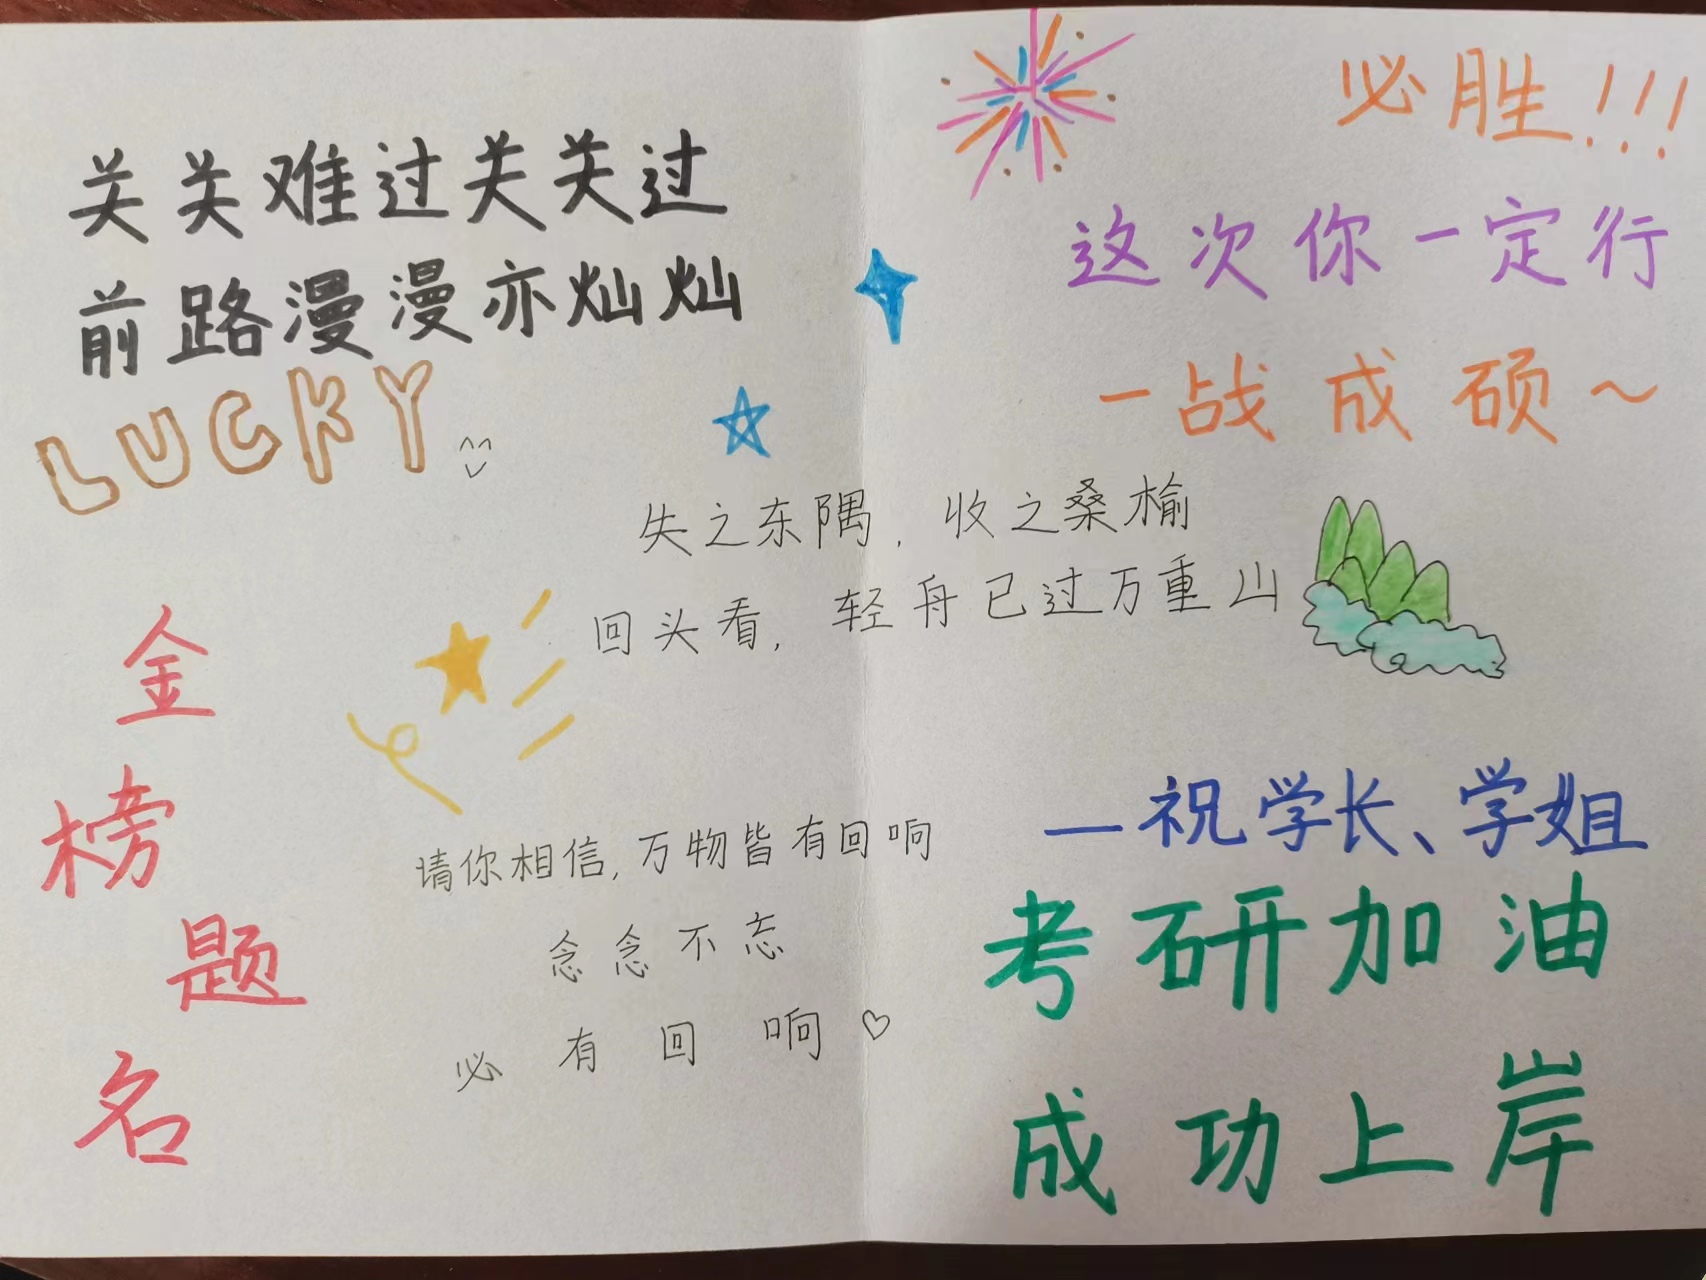 关关难过关关过
前路漫漫亦灿灿
LUCKY
必胜!!!
这次你一定行
一战成硕~
失之东隅，收之桑榆
回头看，轻舟已过万重山
金榜题名
请你相信，万物皆有回响
念念不忘
必有回响♡
—祝学长、学姐
考研加油
成功上岸